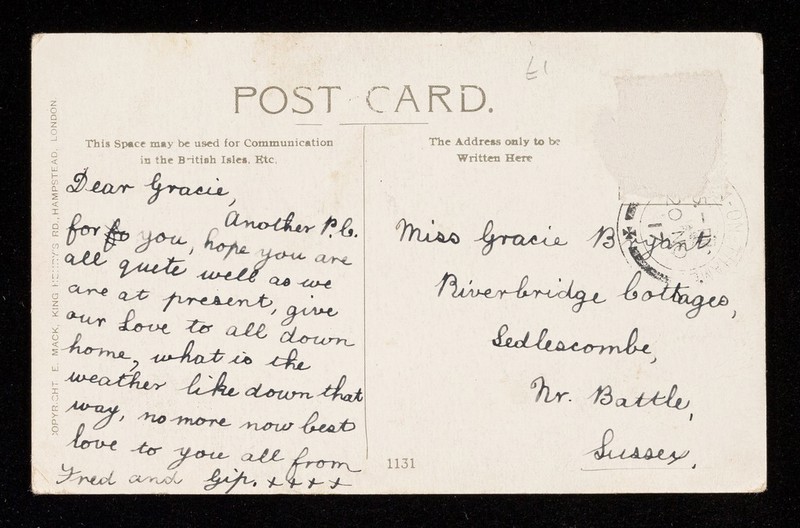 £1
POST CARD.
This Space may be used for Communication
in the British Isles. Etc.
The Address only to be
Written Here
COPYRIGHT. E. MACK, KING HENRY'S RD., HAMPSTEAD, LONDON.
Dear Gracie,
Another P.C.
for you, hope you are
all quete well as we
are at present, give
our Love to all down
home, what is the
weather like down that
way, no more now best
love to you all from
Fred and Gip. x x x x
Miss Gracie Bryant
Riverbridge Cottages,
Sedlescombe,
Nr. Battle,
Sussex,
1131